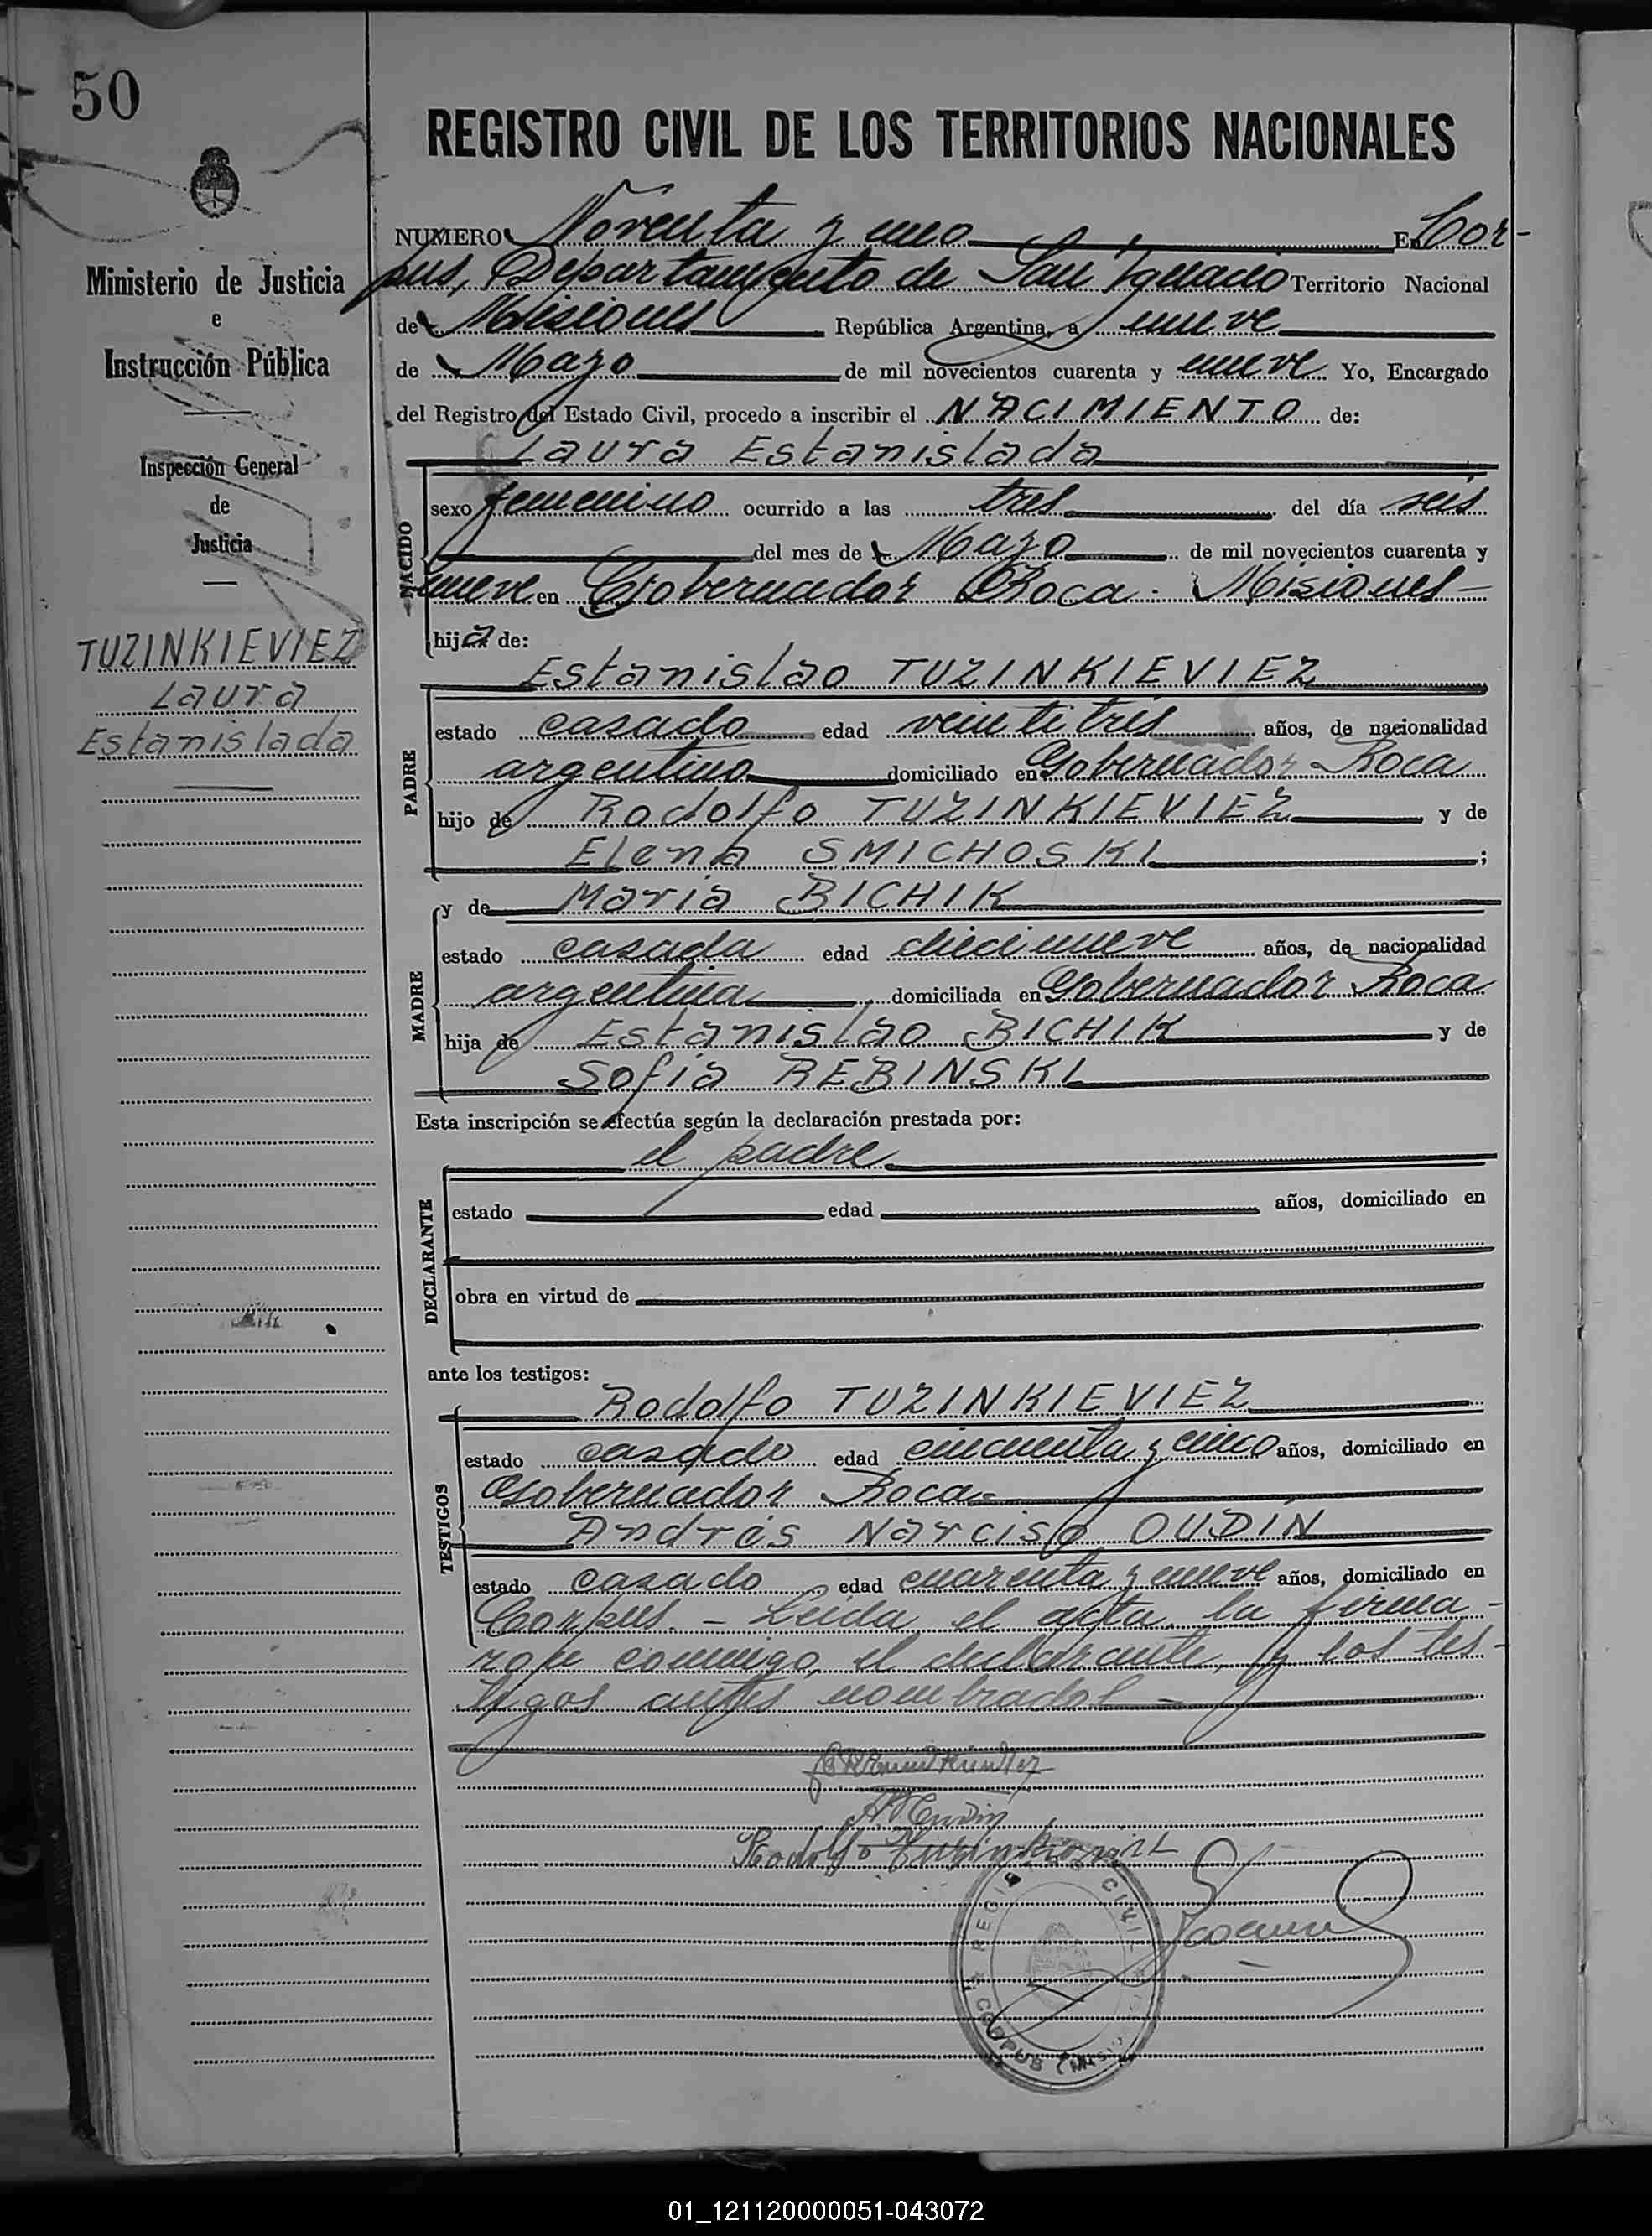 50
REGISTRO CIVIL DE LOS TERRITORIOS NACIONALES
Ministerio de Justicia
e
Instrucción Pública
Inspección General
de
Justicia
TUZINKIEVIEZ
Laura
Estanislada
NUMERO Noventa y uno En Cor-
pus, Departamento de San Ignacio Territorio Nacional
de Misiones República Argentina, a nueve
de Mayo de mil novecientos cuarenta y nueve Yo, Encargado
del Registro del Estado Civil, procedo a inscribir el NACIMIENTO de:
Laura Estanislada
NACIDO
sexo femenino ocurrido a las tres del día seis
del mes de Mayo de mil novecientos cuarenta y
nueve en Gobernador Roca. Misiones-
hija de:
Estanislao TUZINKIEVIEZ
PADRE
estado casado edad veintitrés años, de nacionalidad
argentino domiciliado en Gobernador Roca
hijo de Rodolfo TUZINKIEVIEZ y de
Elena SMICHOSKI ;
y de Maria BICHIK
MADRE
estado casada edad diecinueve años, de nacionalidad
argentina, domiciliada en Gobernador Roca
hija de Estanislao BICHIK y de
Sofia REBINSKI
Esta inscripción se efectúa según la declaración prestada por:
el padre
DECLARANTE
estado edad años, domiciliado en
obra en virtud de
ante los testigos:
Rodolfo TUZINKIEVIEZ
TESTIGOS
estado casado edad cincuenta y cinco años, domiciliado en
Gobernador Roca-
Andrés Narciso OUDIN
estado casado edad cuarenta y nueve años, domiciliado en
Corpus. - Leida el acta, la firma-
ron conmigo, el declarante, y los tes-
tigos antes nombrados -
Rodolfo
REGISTRO CIVIL
CORPUS (MISIONES)
01_121120000051-043072